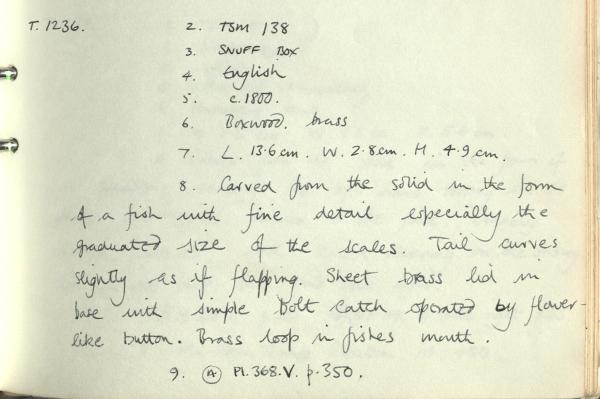 T.1236. 2. TSM 138
3. SNUFF BOX
4. English
5. c.1800.
6. Boxwood. brass
7. L. 13.6cm. W. 2.8cm. H. 4.9cm.
8. Carved from the solid in the form
of a fish with fine detail especially the
graduated size of the scales. Tail curves
slightly as if flapping. Sheet brass lid in
base with simple bolt catch operated by flower-
like button. Brass loop in fishes mouth.
9. (A) Pl.368.V. p.350.